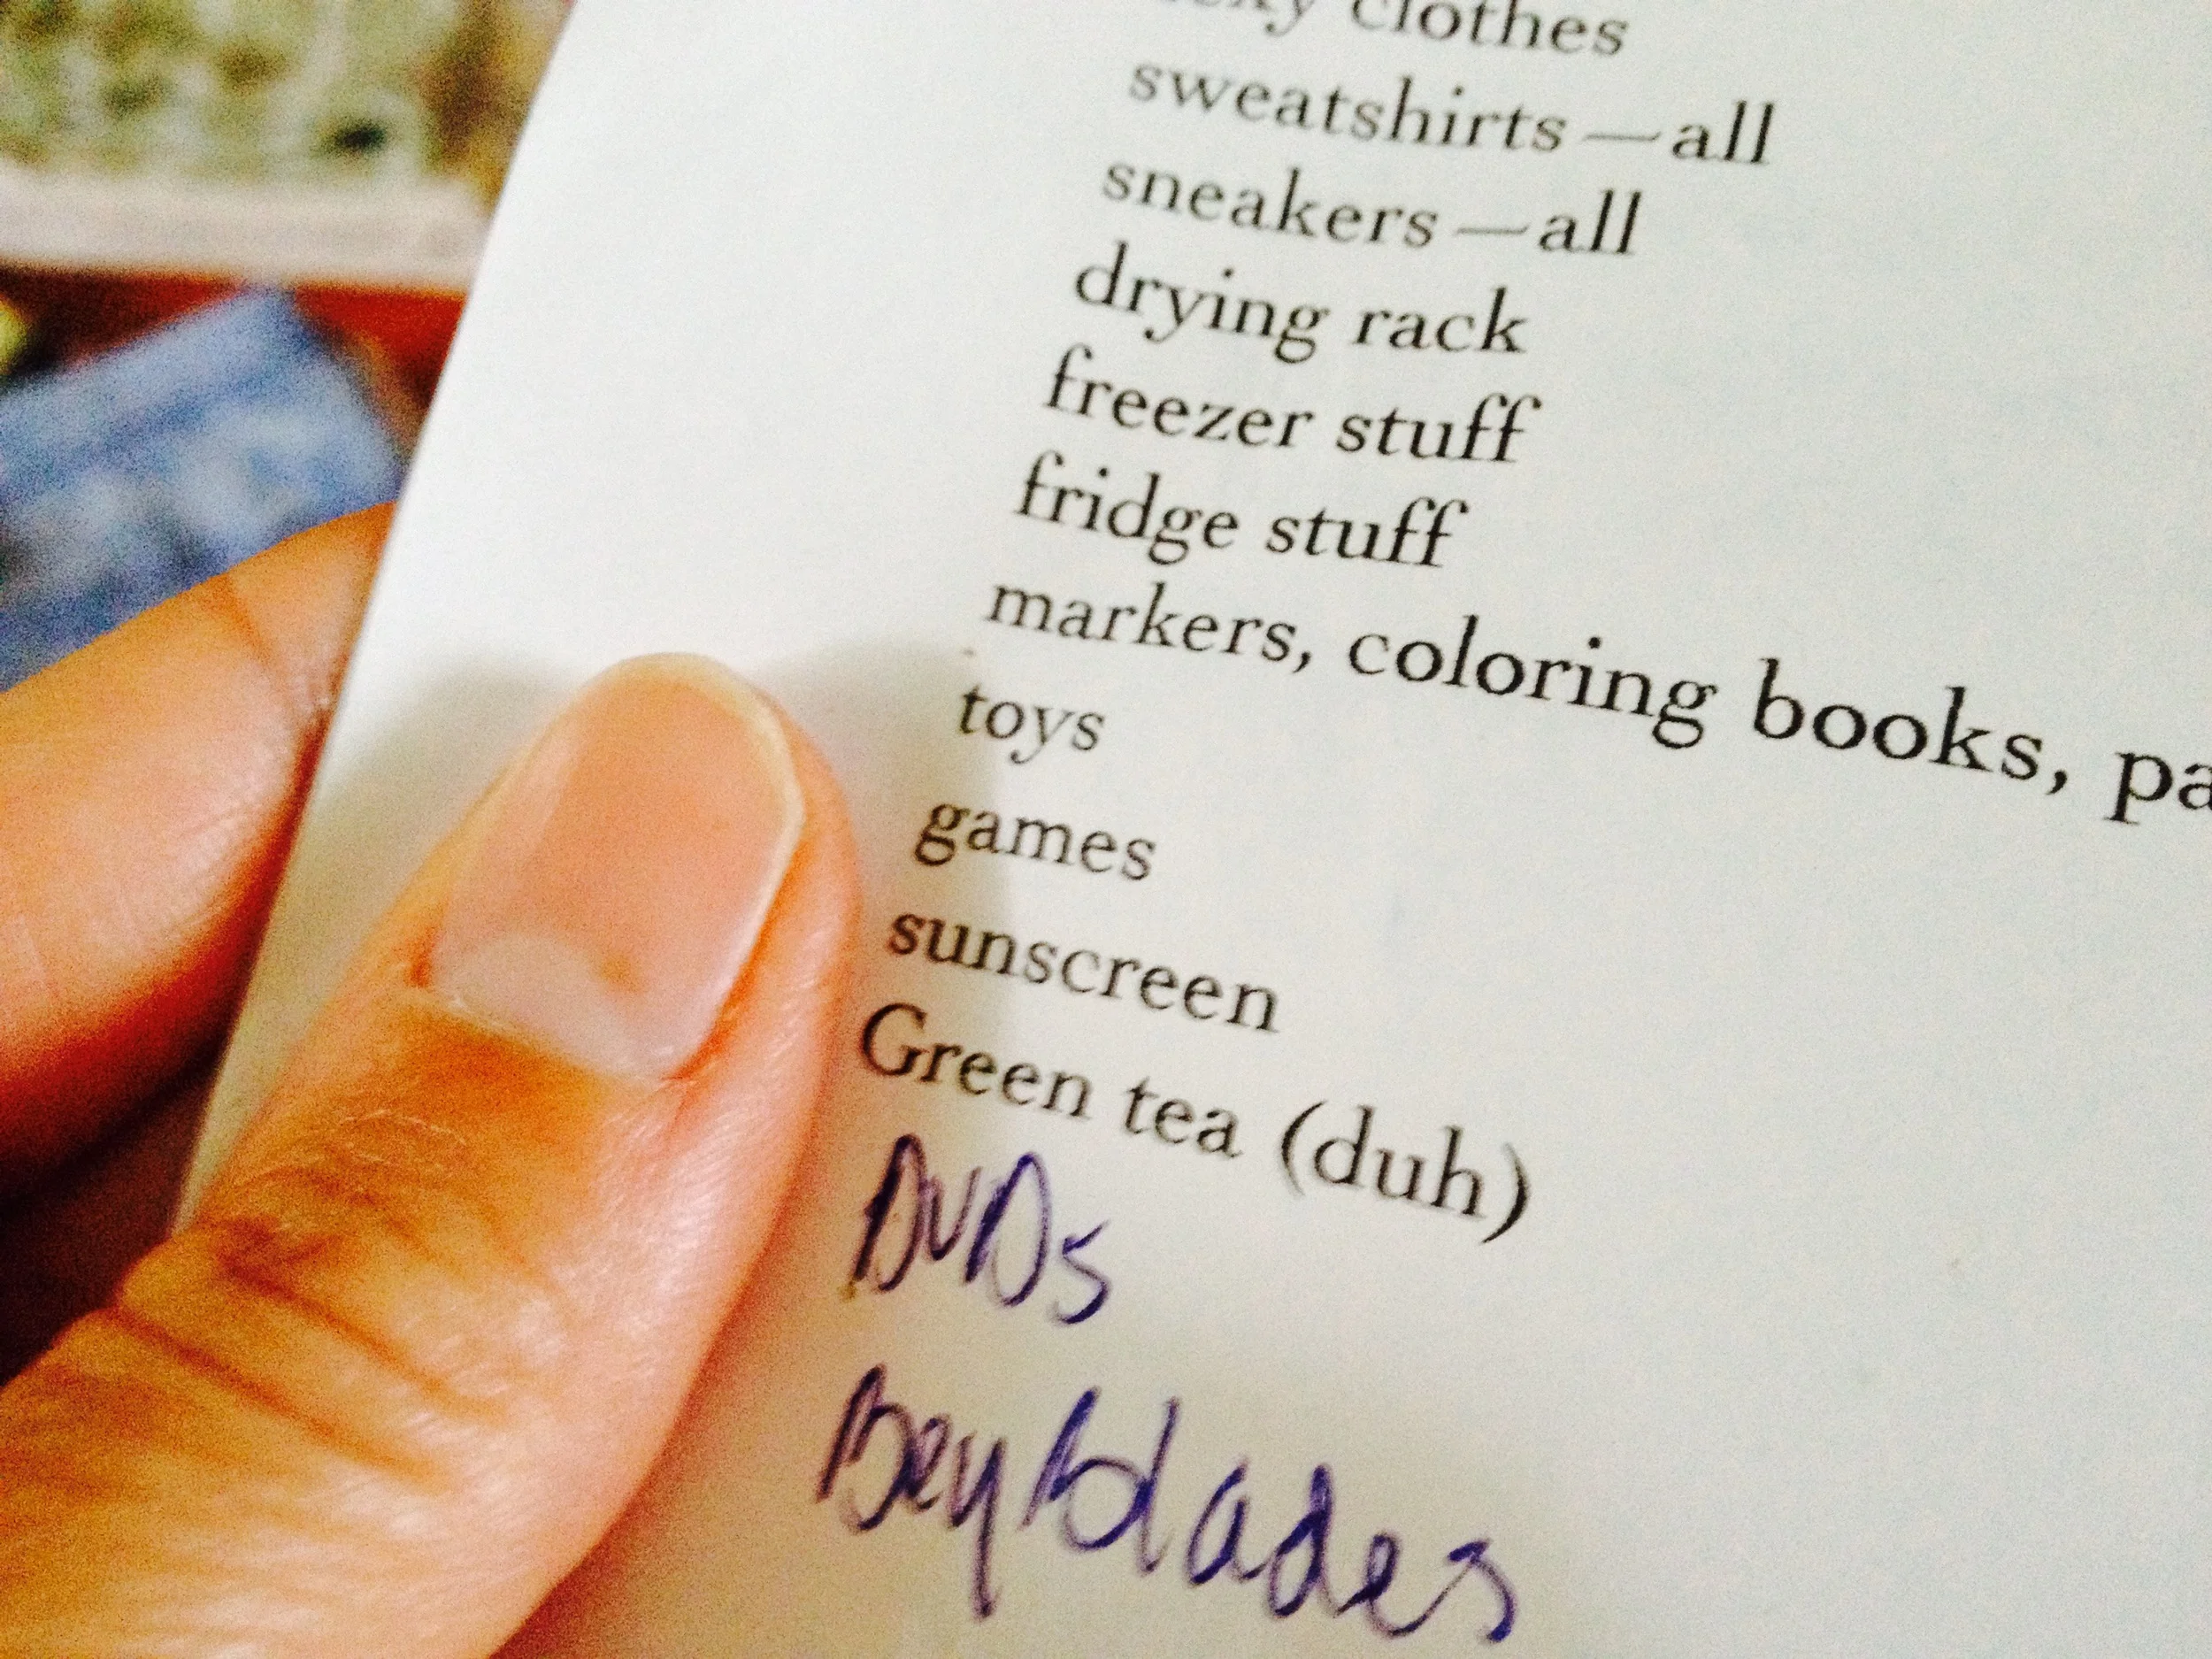 clothes
sweatshirts—all
sneakers—all
drying rack
freezer stuff
fridge stuff
markers, coloring books, pa
toys
games
sunscreen
Green tea (duh)
DVDs
BeyBlades